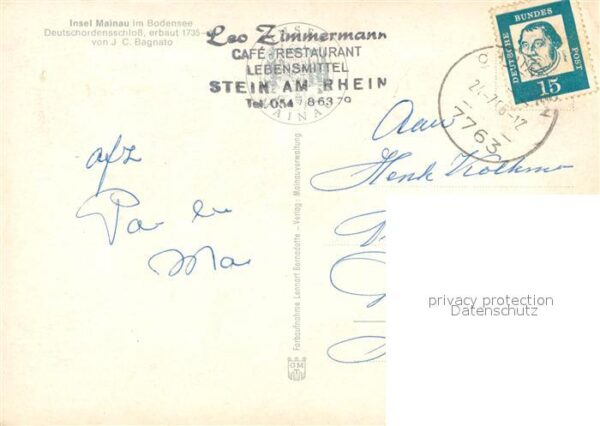 Insel Mainau im Bodensee
Deutschordensschloß, erbaut 1735
von J. C. Bagnato
Leo Zimmermann
CAFÉ RESTAURANT
LEBENSMITTEL
STEIN AM RHEIN
Tel. 054 8 63 79
INSEL
MAINAU
DEUTSCHE BUNDES POST
15
7763
Aan
Henk
afz
Pa en
Ma
Farbaufnahme Lennart Bernadotte - Verlag: Mainauverwaltung
OM
privacy protection
Datenschutz